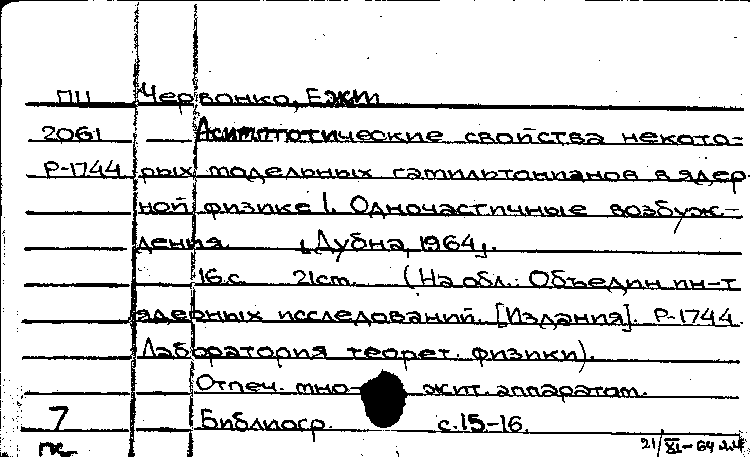 ПЦ Червонко, Е
2061 Асимптотические свойства некото=
Р-1744 рых модельных гамильтонианов в ядер
ной физике I. Одночастичные возбуж-
дения. [Дубна, 1964].
16 с. 21 cm. (На обл.: Объедин ин-т
ядерных исследований. [Издания]. Р-1744.
Лаборатория теорет. физики).
Отпеч. мно- жит. аппаратом.
7 Библиогр. с. 15-16.
21/XI-64